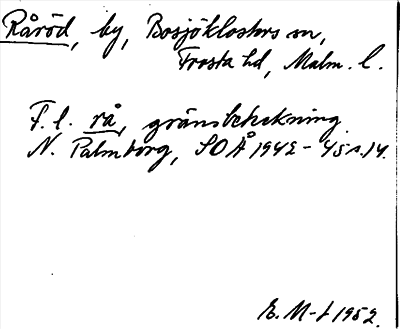 Råröd, by, Bosjöklosters sn,
Frosta hd, Malm. l.
F. l. rå, gränsbeteckning.
N. Palmborg, SOÅ 1942-45 s. 14.
E. M-t 1952.